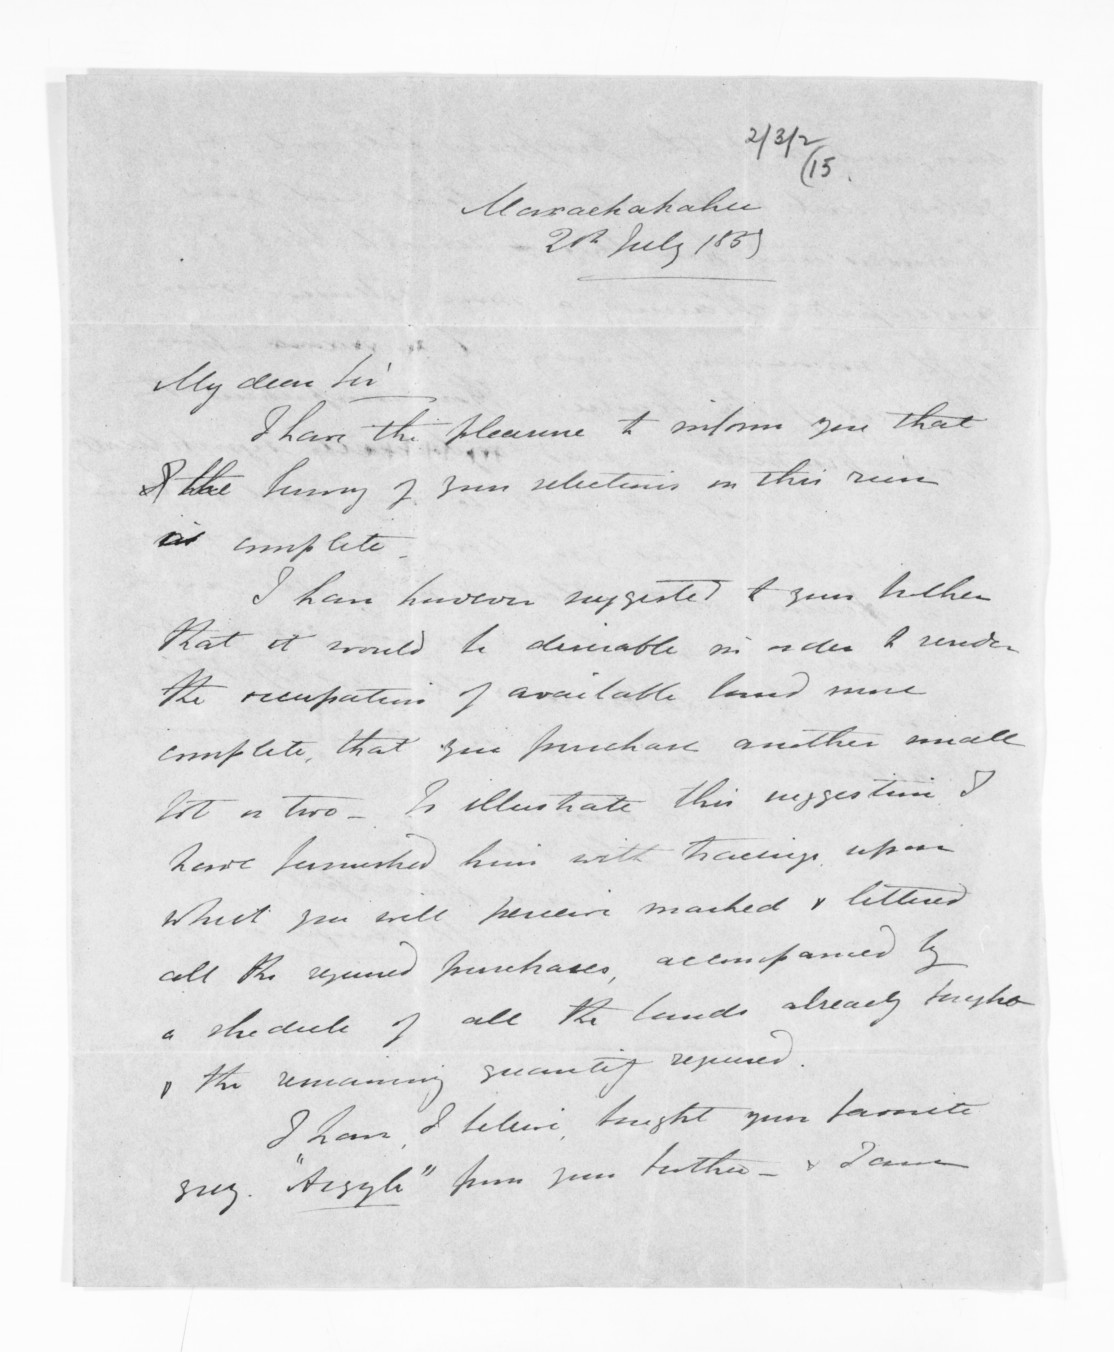 2/3/2
(15.
Maraekakaho
20th July 1859
My dear Sir
I have the pleasure to inform you that
the survey of your selections on this run
is complete.
I have however suggested to your brother
that it would be desirable in order to render
the occupation of available land more
complete, that you purchase another small
lot or two - To illustrate this suggestion I
have furnished him with tracings upon
which you will perceive marked & lettered
all the required purchases, accompanied by
a shedule of all the lands already bought
& the remaining quantity required.
I have, I believe, bought your favorite
grey. "Argyle" from your brother - & I am